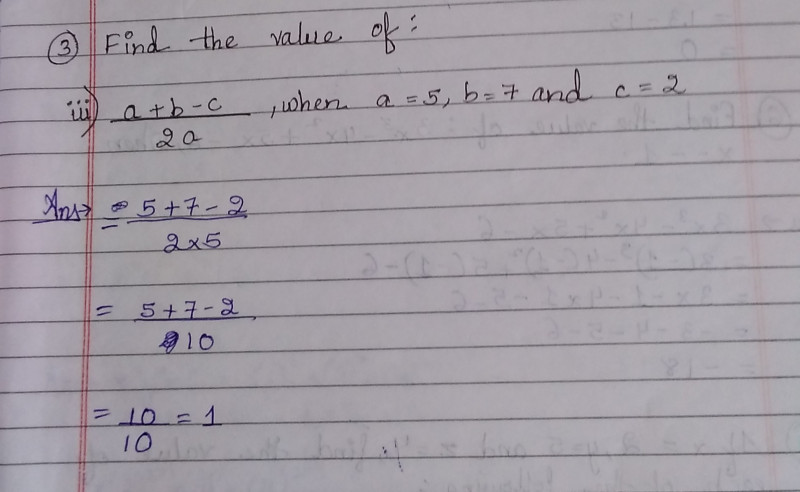 ③ Find the value of :
iii) a+b-c / 2a , when a=5, b=7 and c=2
Ans→ = 5+7-2 / 2×5
= 5+7-2 / 10
= 10/10 = 1